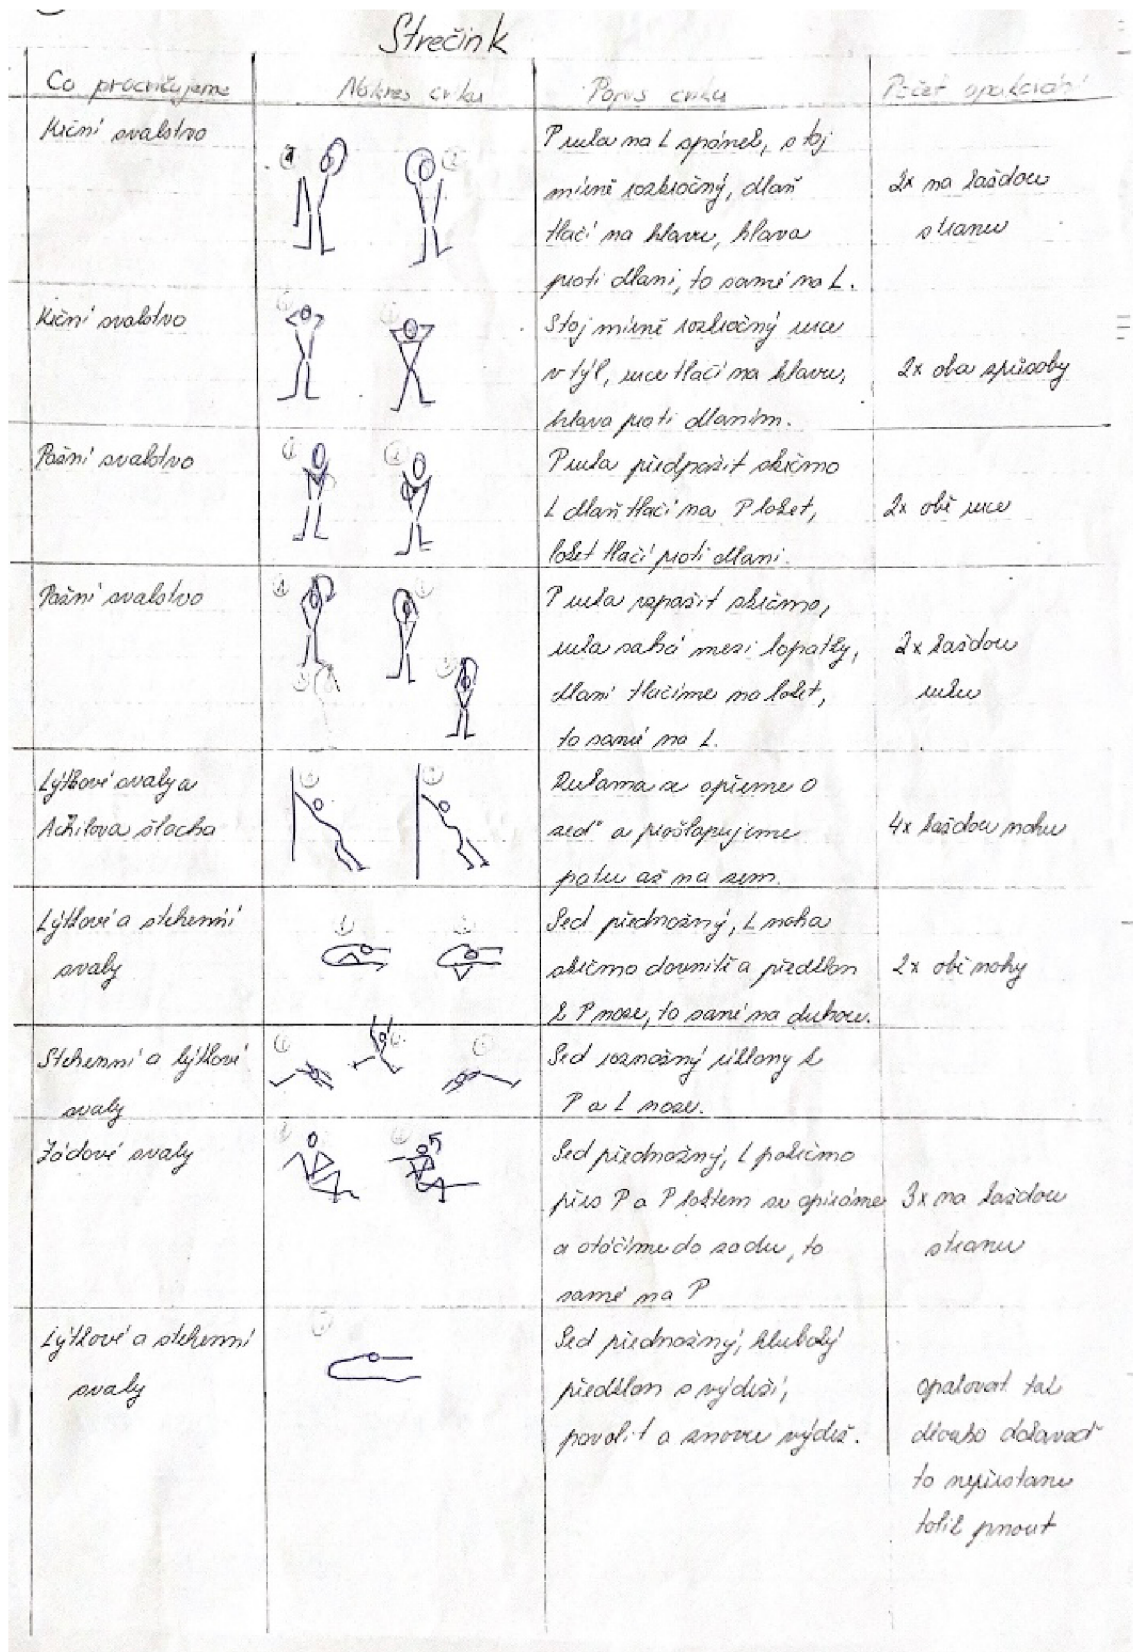 Strečink
Co procvičujeme
Nákres cviku
Popis cviku
Počet opakování
Krční svalstvo
P ruka na L spánek, stoj
mírně rozkročný, dlaň
tlačí na hlavu, hlava
proti dlani, to samé na L.
2x na každou
stranu
Krční svalstvo
Stoj mírně rozkročný ruce
v týl, ruce tlačí na hlavu,
hlava proti dlaním.
2x oba způsoby
Pažní svalstvo
P ruka předpažit skrčmo
L dlaň tlačí na P loket,
loket tlačí proti dlani.
2x obě ruce
Pažní svalstvo
P ruka vzpažit skrčmo,
ruka sahá mezi lopatky,
dlaní tlačíme na loket,
to samé na L.
2x každou
ruku
Lýtkové svaly a
Achilova šlacha
Rukama se opřeme o
zeď a prošlapujeme
patu až na zem.
4x každou nohu
Lýtkové a stehenní
svaly
Sed přednožný, L noha
skrčmo dovnitř a předklon
k P noze, to samé na druhou.
2x obě nohy
Stehenní a lýtkové
svaly
Sed roznožný úklony k
P a L noze.
Zádové svaly
Sed přednožný, L pokrčmo
přes P a P loktem se opíráme
a otočíme do zadu, to
samé na P
3x na každou
stranu
Lýtkové a stehenní
svaly
Sed přednožný, hluboký
předklon s výdrží,
povolit a znovu výdrž.
opakovat tak
dlouho dokavaď
to nepřestane
tolik pnout